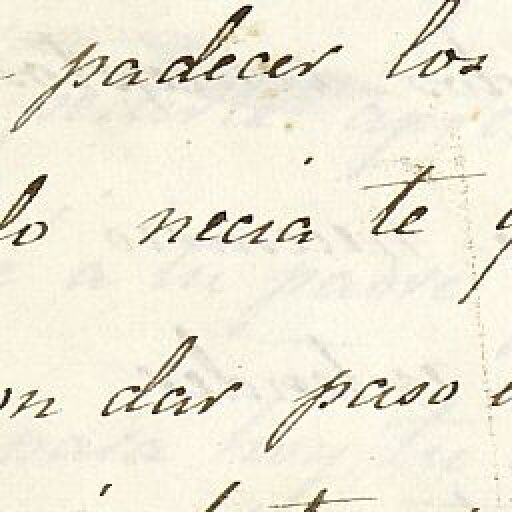 padecer los
lo necia te
on dar paso